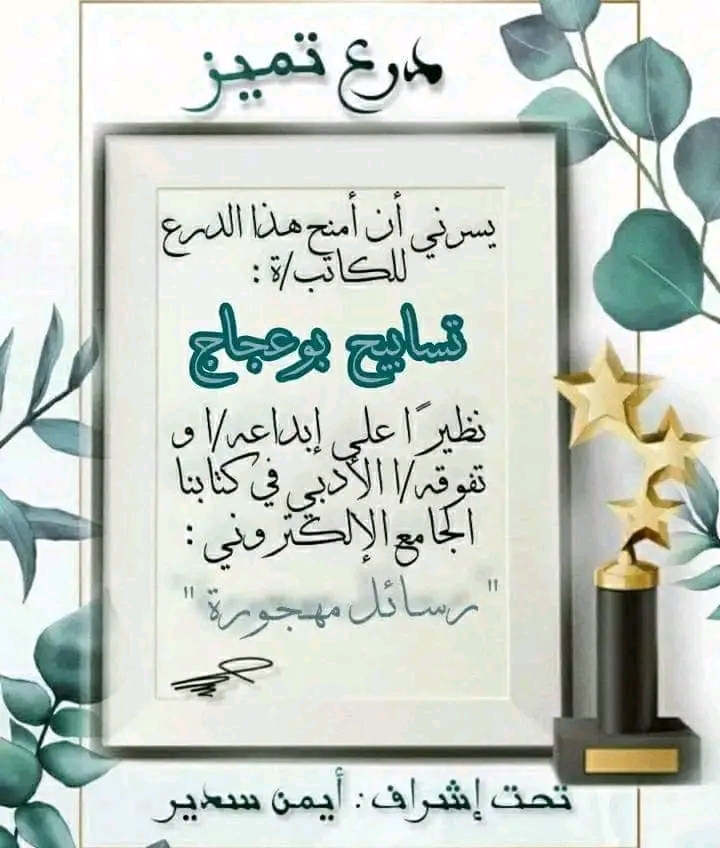 درع تميز
يسرني أن أمنح هذا الدرع
للكاتب/ة :
تسابيح بوعجاج
نظيرًا على إبداعه/ا و
تفوقه/ا الأدبي في كتابنا
الجامع الإلكتروني :
"رسائل مهجورة"
تحت إشراف : أيمن سدير